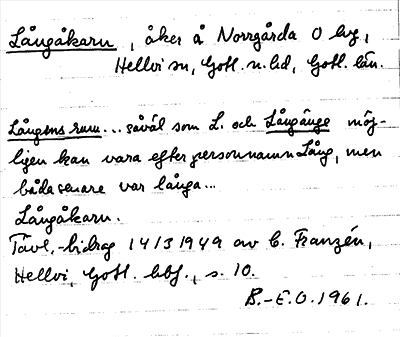 Långåkarn, åker å Norrgårda O hvg,
Hellvi sn, Gotl. n. hd, Gotl. län.
Långens rum... såväl som L. och Långänge möj-
ligen kan vara efter personnamn Lång, men
båda senare var långa...
Långåkarn.
Tävl.-bidrag 14/3 1949 av C. Franzén,
Hellvi, Gotl. hbf., s. 10.
B.-E.O. 1961.